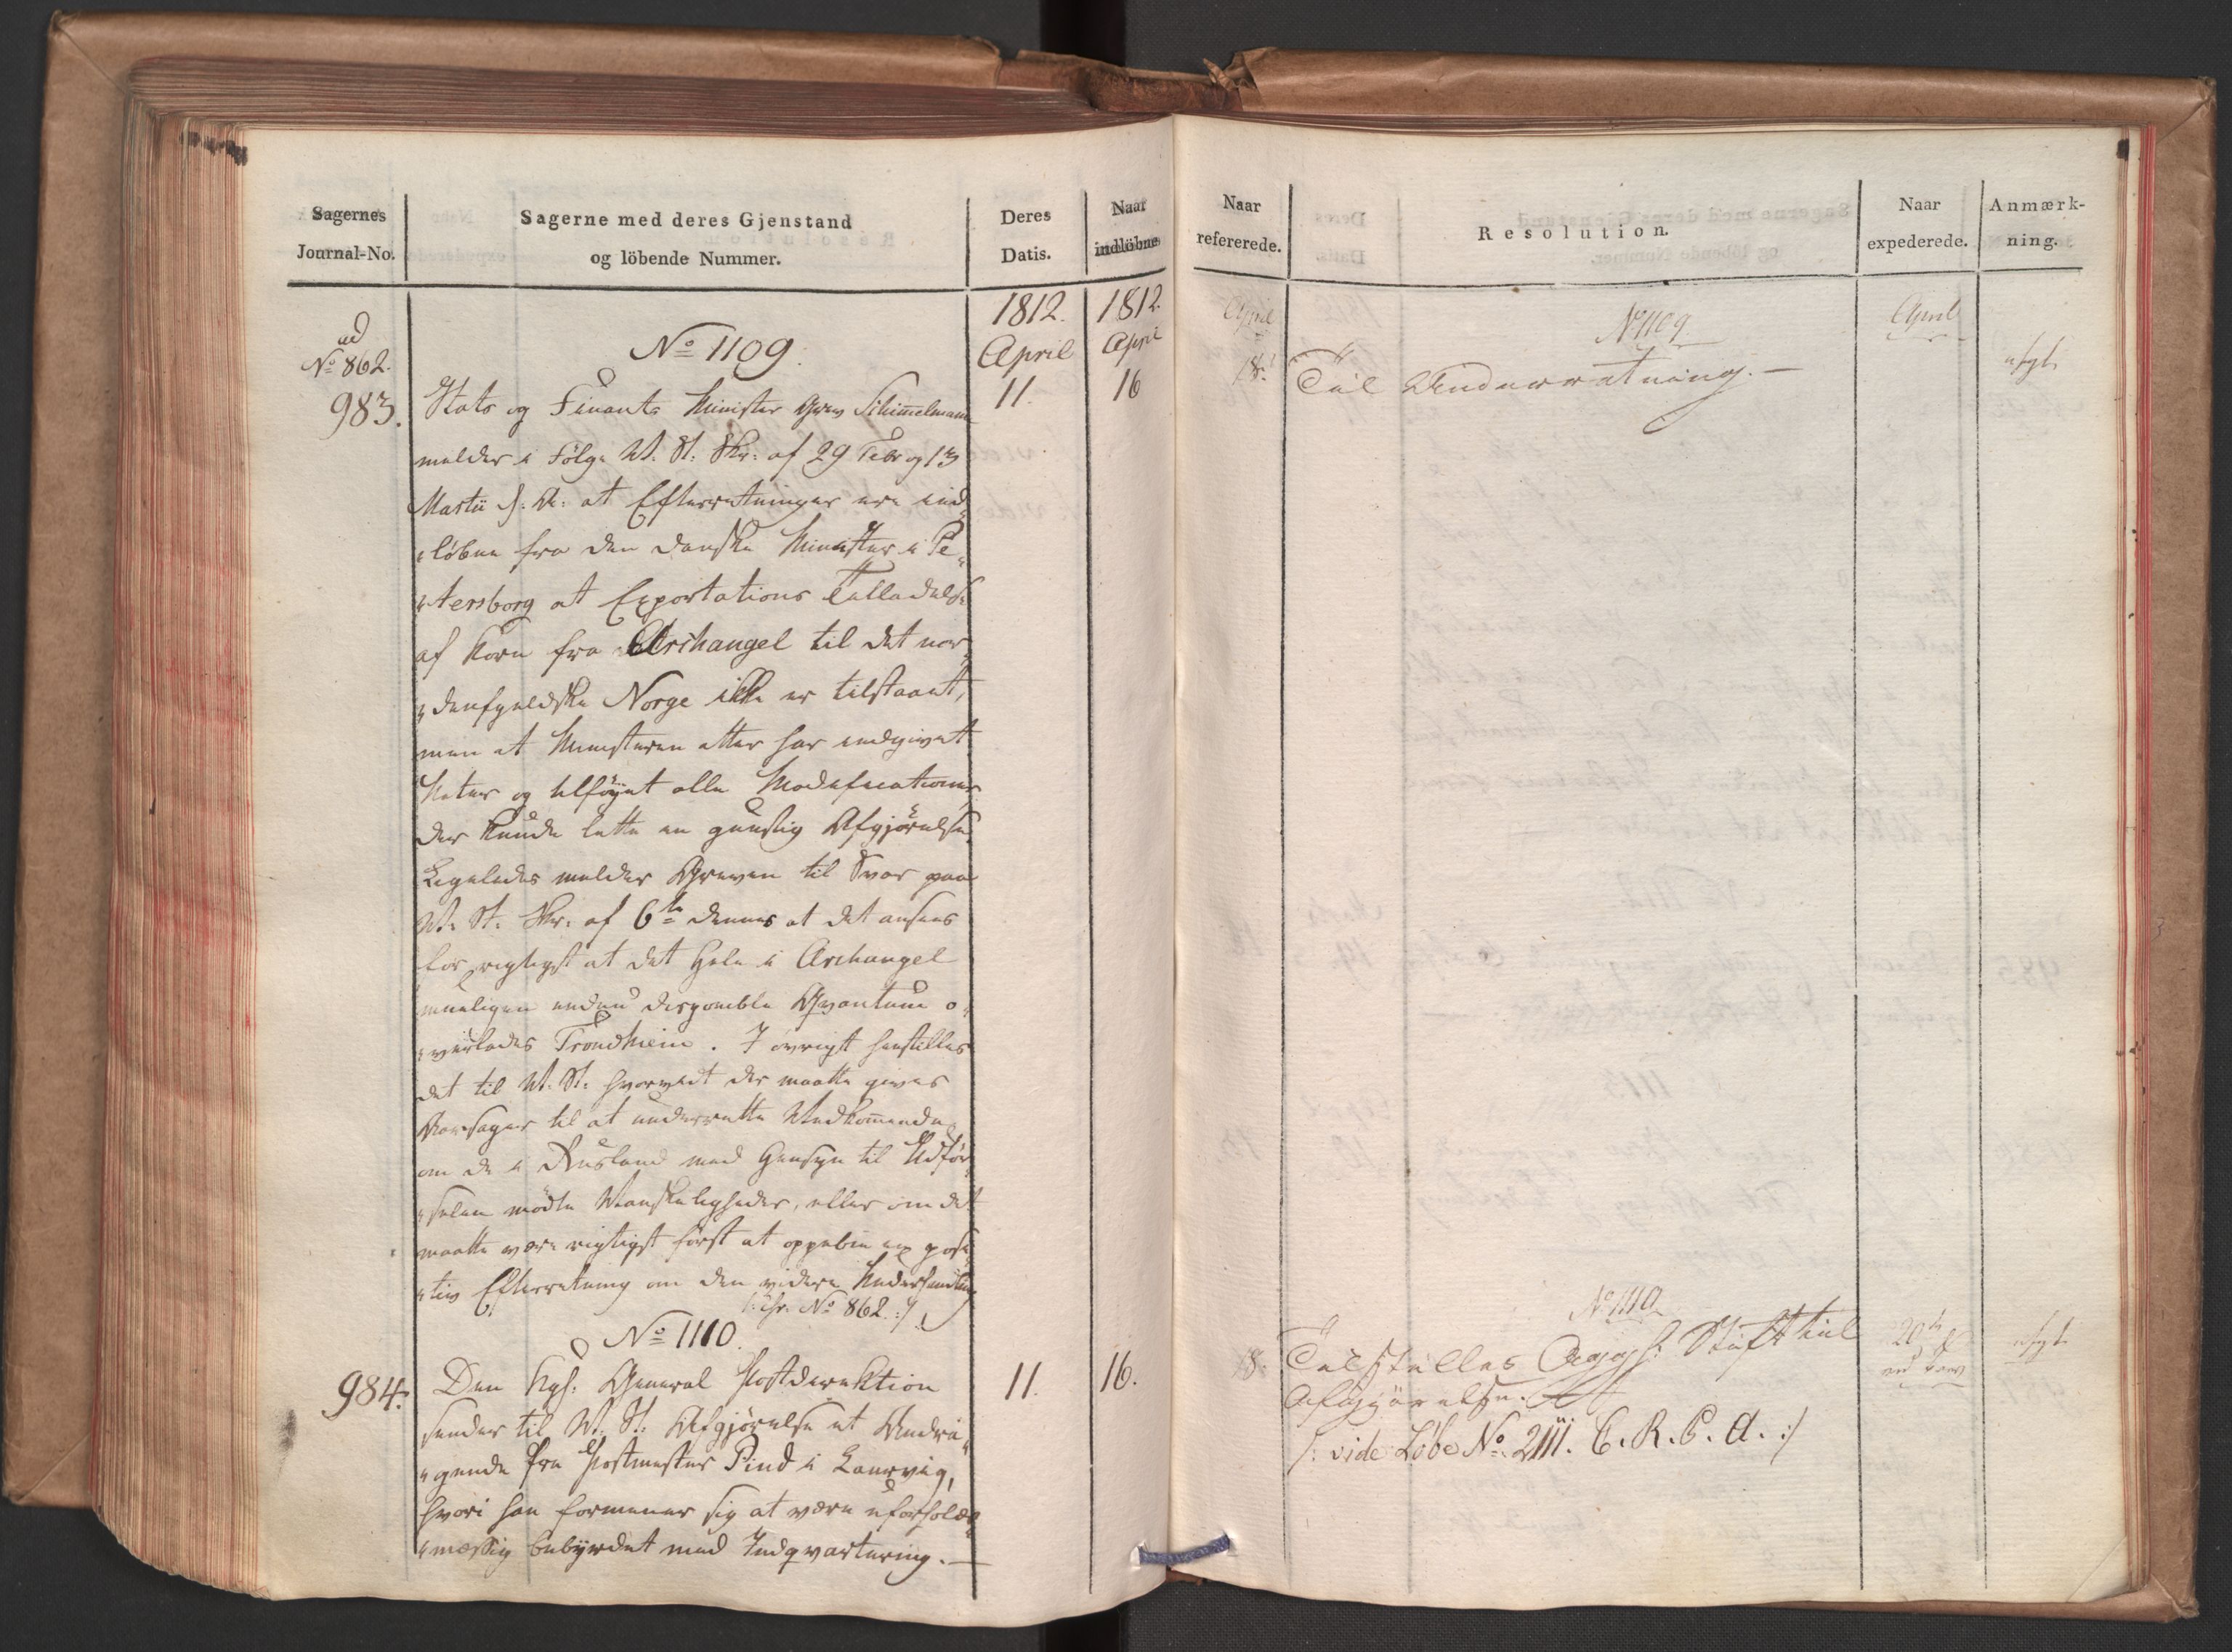 Sagernes
Journal-No.
Sagerne med deres Gjenstand
og löbende Nummer.
Deres
Datis.
Naar
indlöbne
1812.
April
1812.
April
ad
No 862.
983.
No 1109.
11.
16
Stats og Finants Minister Grev Schimmelmann
melder i Følge W. St. Skr: af 29 Febr og 13
Martii d. A: at Efterretninger ere ind
løbne fra den danske Minister i Pe
tersborg at Exportations Tilladelse
af Korn fra Archangel til det nor
denfjeldske Norge ikke er tilstaaet,
men at Ministeren atter har indgivet
Noter og tilføyet alle Modificationer
der kunde lette en gunstig Afgjørelse.
Ligeledes melder Greven til Svar paa
W. St. Skr: af 6te dennes at det ansees
for rigtigst at det hele i Archangel
mueligen endnu disponible Qvantum o
verlades Trondhiem. I øvrigt henstilles
det til W. St. hvorvidt der maatte gives
Aarsager til at underrette Vedkommende
om de i Rusland med Hensyn til Udför
selen mødte Vanskeligheder, eller om det
maatte være rigtigst först at oppebie en posi
tiv Efterretning om den videre Underhandling
/: cfr. No 862 :/
No 1110.
984.
11.
16.
Den Kgl: General Postdirektion
sender til W. St. Afgjørelse et Andra
gende fra Postmester Pind i Laurvig,
hvori han formener sig at være uforholds
mæssig bebyrdet med Indqvartering. —
Naar
refererede.
Resolution.
Naar
expederede.
Anmærk-
ning.
April
18.
No 1109
Til Underretning. —
April
afgl.
No 1110
18.
Tilstilles Aggh: Stift til
Afgjörelse.
/: vide Löbe No 2111. C. R. P. A. :/
20de
afgl.